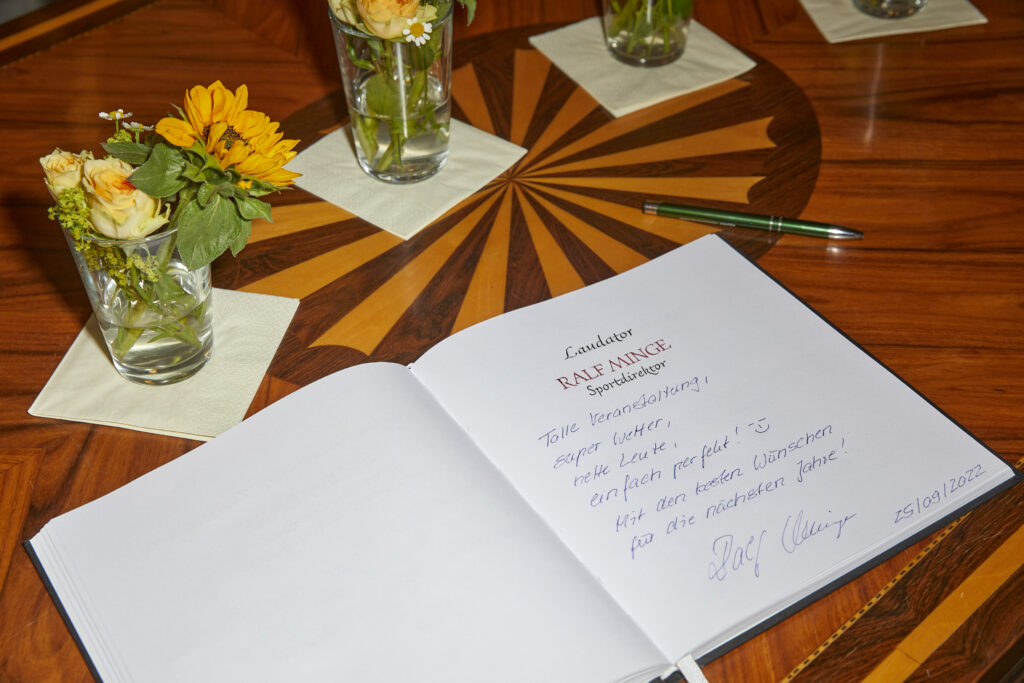 Laudator
RALF MINGE
Sportdirektor
Tolle Veranstaltung,
super Wetter,
nette Leute,
einfach perfekt! :-)
Mit den besten Wünschen
für die nächsten Jahre!
Ralf Minge
25/09/2022